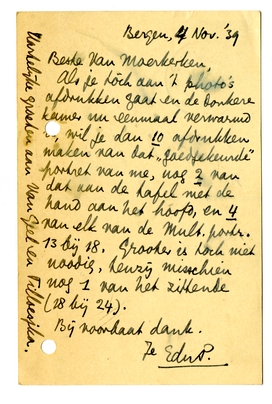 Bergen, 4 Nov. '39
Beste Van Moerkerken,
Als je tòch aan 't photo's
afdrukken gaat en de donkere
kamer nu eenmaal verwarmd
is, wil je dan 10 afdrukken
maken van dat „goedgekeurde”
portret van me, nog 2 van
dat aan de tafel met de
hand aan het hoofd, en 4
van elk van de Mult. portr.
13 bij 18. Grooter is toch niet
noodig, tenzij misschien
nog 1 van het zittende
(18 bij 24).
Bij voorbaat dank.
Je EduP.
Hartelijke groeten aan Van Gel en